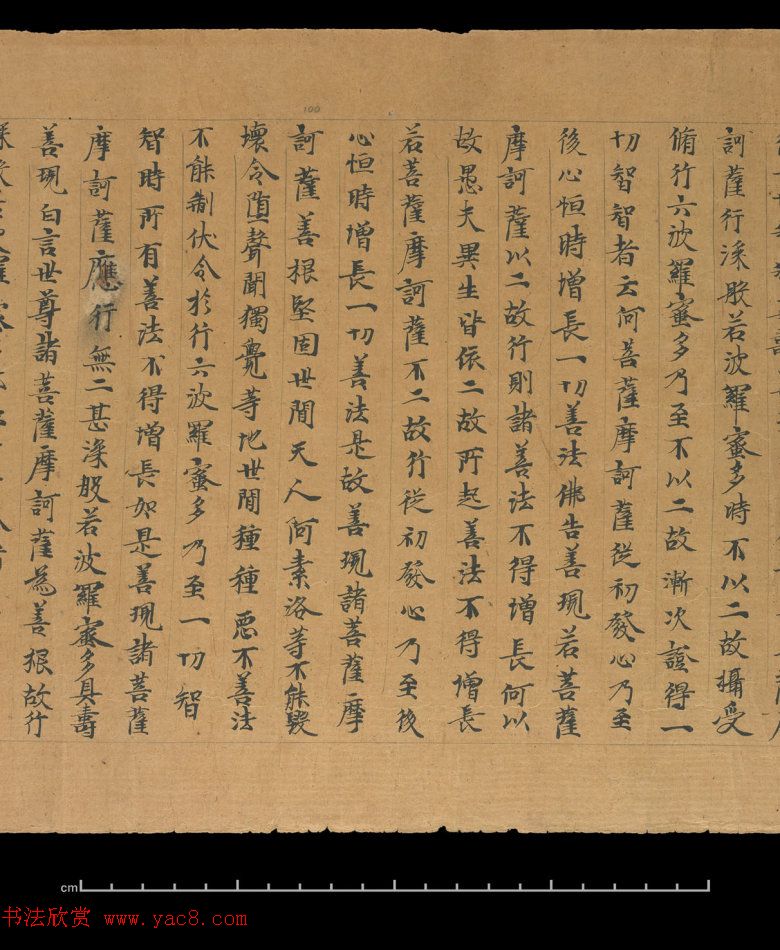 訶薩行深般若波羅蜜多時不以二故攝受
脩行六波羅蜜多乃至不以二故漸次證得一
切智智者云何菩薩摩訶薩從初發心乃至
後心恒時增長一切善法佛告善現若菩薩
摩訶薩以二故行則諸善法不得增長何以
故愚夫異生皆依二故所起善法不得增長
若菩薩摩訶薩不二故行從初發心乃至後
心恒時增長一切善法是故善現諸菩薩摩
訶薩善根堅固世間天人阿素洛等不能毀
壞令墮聲聞獨覺等地世間種種惡不善法
不能制伏令於行六波羅蜜多乃至一切智
智時所有善法不得增長如是善現諸菩薩
摩訶薩應行無二甚深般若波羅蜜多具壽
善現白言世尊諸菩薩摩訶薩為善根故行
100
cm
书法欣赏 www.yac8.com